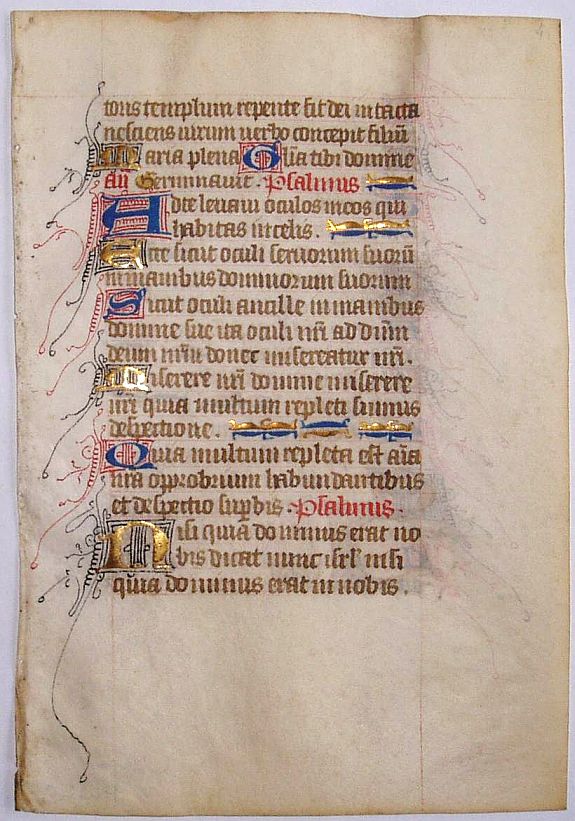 toris templum repente fit dei intacta
nesciens uirum uerbo concepit filiū
Maria plena Glia tibi domine
añ Germinauit. Psalmus
Ad te leuaui oculos meos qui
habitas in celis.
Ecce sicut oculi seruorum suorū
in manibus dominorum suorum
Sicut oculi ancille in manibus
domine sue ita oculi nr̄i ad dn̄m
deum nr̄m donec misereatur nr̄i.
Miserere nr̄i domine miserere
nr̄i quia multum repleti sumus
despectione.
Quia multum repleta est aīa
nr̄a opprobrium habundantibus
et despectio supbis. Psalmus.
Nisi quia dominus erat no
bis dicat nunc isrl nisi
quia dominus erat in nobis.